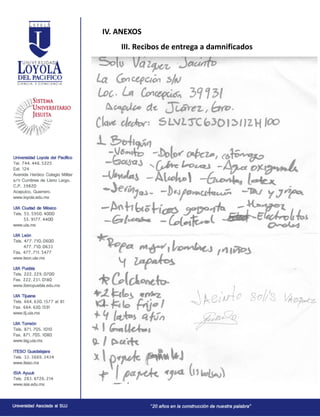 LOYOLA
UNIVERSIDAD
LOYOLA
DEL PACÍFICO
CIENCIA Y CONCIENCIA
SISTEMA
UNIVERSITARIO
JESUITA
Universidad Loyola del Pacífico
Tel. 744. 446. 5225
Ext. 124
Avenida Heroico Colegio Militar
s/n Cumbres de Llano Largo,
C.P. 39820
Acapulco, Guerrero.
www.loyola.edu.mx
UIA Ciudad de México
Tels. 55. 5950. 4000
55. 9177. 4400
www.uia.mx
UIA León
Tels. 477. 710. 0600
477. 710. 0633
Fax. 477. 711. 5477
www.leon.uia.mx
UIA Puebla
Tels. 222. 229. 0700
Fax. 222. 231. 0180
www.iberopuebla.edu.mx
UIA Tijuana
Tels. 664. 630. 1577 al 81
Fax. 664. 630. 1591
www.tij.uia.mx
UIA Torreón
Tels. 871. 705. 1010
Fax. 871. 705. 1080
www.lag.uia.mx
ITESO Guadalajara
Tels. 33. 3669. 3434
www.iteso.mx
ISIA Ayuuk
Tels. 283. 8725. 214
www.isia.edu.mx
IV. ANEXOS
III. Recibos de entrega a damnificados
Solis Vázquez Jacinto
La Concepción s/N
Loc. La Concepción 39931
Acapulco de Juárez, Gro.
Clave elector: SLVZJC63013112H100
1 Botiquín
-Vómito -Dolor cabeza, estómago
-Gasas -Cubre bocas -Agua oxigenada
-Vendas -Alcohol -Guantes latex
-Jeringas -Desparacitación -Tos y gripa
-Antibióticos garganta -Hongos
-Electrolitos
Orales
*Ropa mujer, hombres, niños
y zapatos
*Colchoneta
*2 kilos arroz
*1 Kilo frijol
*4 latas atún
Jacinto Solis Vázquez
*1 Galletas
1 aceite
x 1 paquete
* 1 paquete agua
Universidad Asociada al SUJ
"20 años en la construcción de nuestra palabra"